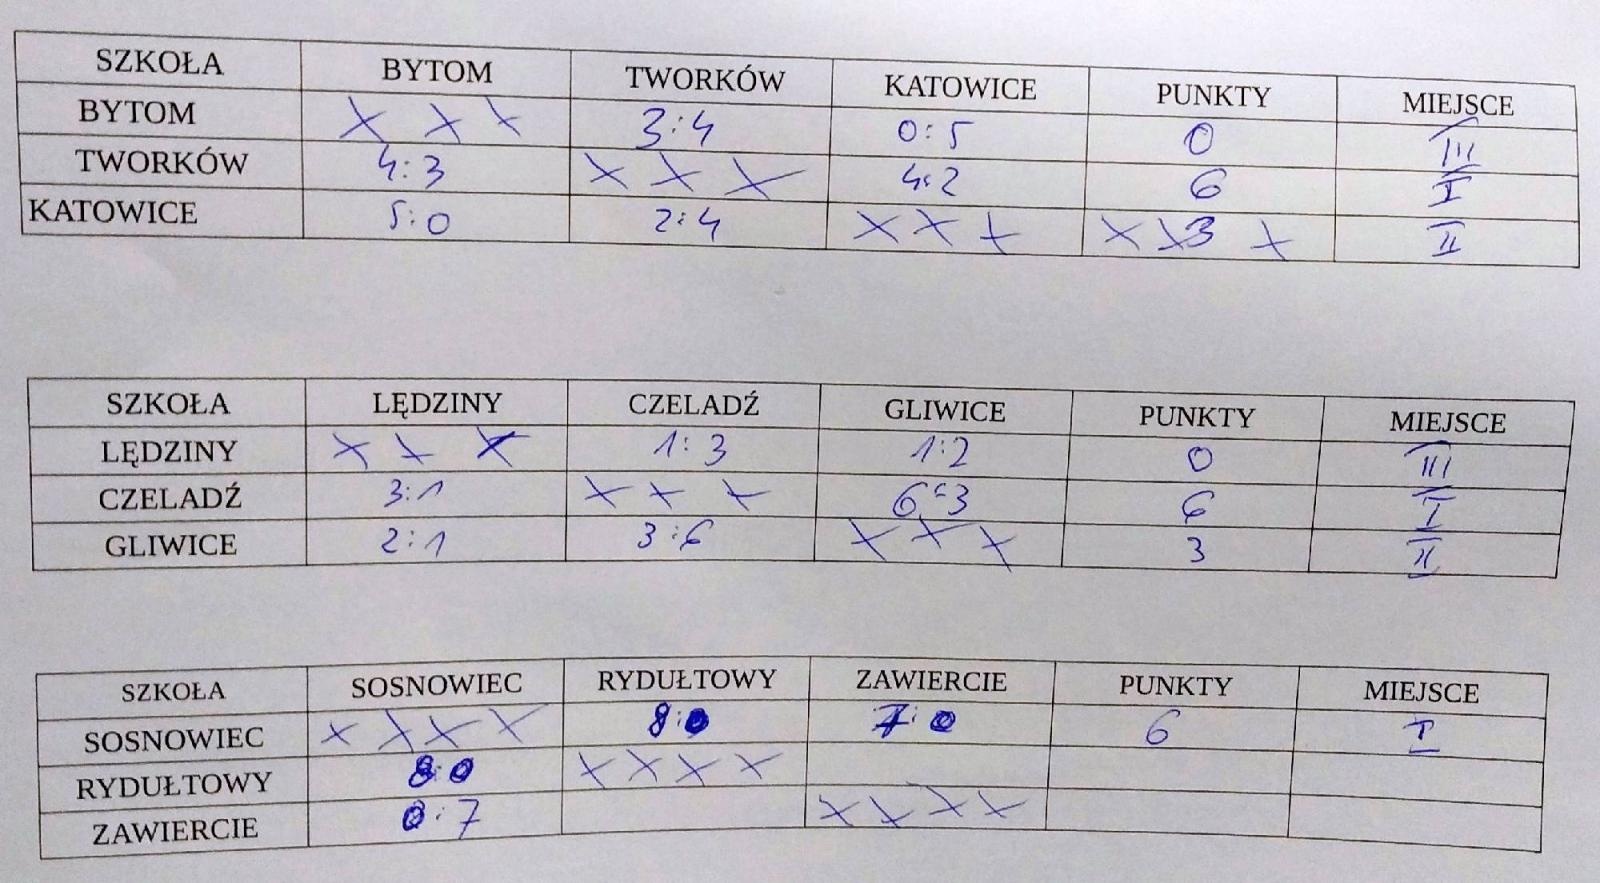 SZKOŁA BYTOM TWORKÓW KATOWICE PUNKTY MIEJSCE
BYTOM X X X 3:4 0:5 0 III
TWORKÓW 4:3 X X X 4:2 6 I
KATOWICE 5:0 2:4 X X X X X 3 X II
SZKOŁA LĘDZINY CZELADŹ GLIWICE PUNKTY MIEJSCE
LĘDZINY X X X 1:3 1:2 0 III
CZELADŹ 3:1 X X X 6:3 6 I
GLIWICE 2:1 3:6 X X X 3 II
SZKOŁA SOSNOWIEC RYDUŁTOWY ZAWIERCIE PUNKTY MIEJSCE
SOSNOWIEC X X X X 8:0 7:0 6 I
RYDUŁTOWY 8:0 X X X X
ZAWIERCIE 0:7 X X X X